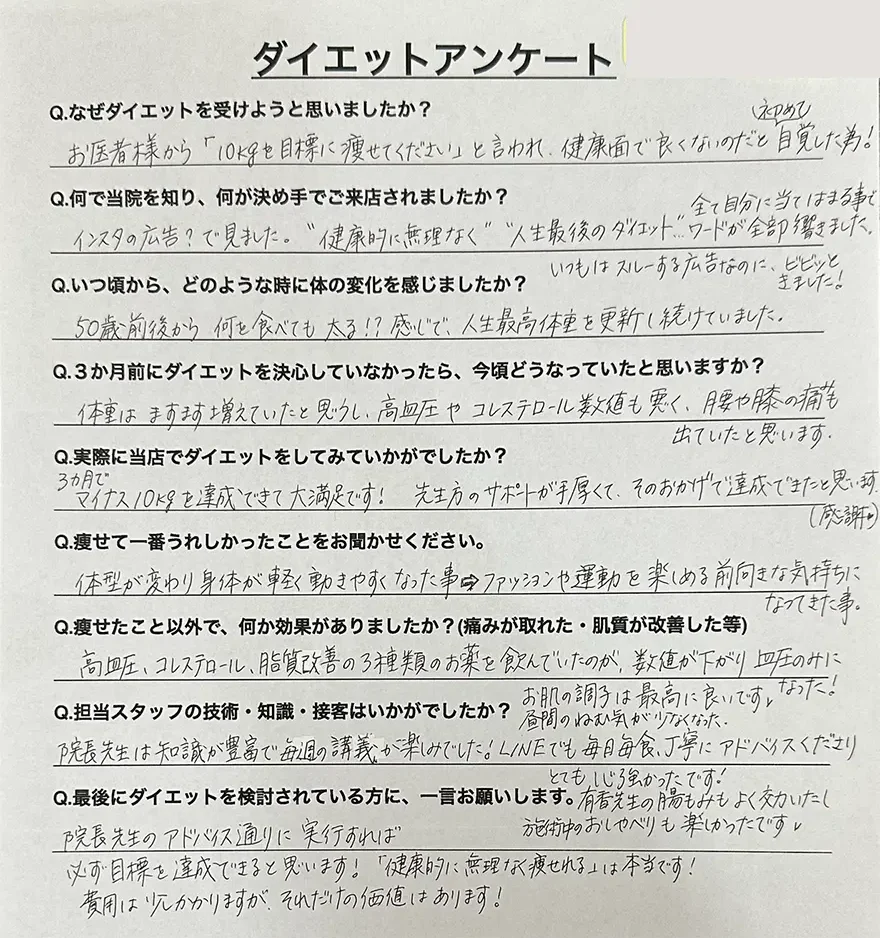 ダイエットアンケート
Q.なぜダイエットを受けようと思いましたか？
初めて
お医者様から「10kgを目標に痩せてください」と言われ、健康面で良くないのだと自覚した為!
Q.何で当院を知り、何が決め手でご来店されましたか？
全て自分に当てはまる事で
インスタの広告？で見ました。"健康的に無理なく" "人生最後のダイエット"…ワードが全部響きました。
いつもはスルーする広告なのに、ビビッと
きました!
Q.いつ頃から、どのような時に体の変化を感じましたか？
50歳前後から何を食べても太る!?感じで、人生最高体重を更新し続けていました。
Q.３か月前にダイエットを決心していなかったら、今頃どうなっていたと思いますか？
体重はますます増えていたと思うし、高血圧やコレステロール数値も悪く、腰や膝の痛みも
出ていたと思います.
Q.実際に当店でダイエットをしてみていかがでしたか？
3カ月で
マイナス10kgを達成できて大満足です! 先生方のサポートが手厚くて、そのおかげで達成できたと思います.
(感謝)
Q.痩せて一番うれしかったことをお聞かせください。
体型が変わり身体が軽く動きやすくなった事⇨ファッションや運動を楽しめる前向きな気持ちに
なってきた事。
Q.痩せたこと以外で、何か効果がありましたか？(痛みが取れた・肌質が改善した等)
高血圧、コレステロール、脂質改善の3種類のお薬を飲んでいたのが、数値が下がり血圧のみに
なった!
お肌の調子は最高に良いです。
昼間のねむ気が少なくなった.
Q.担当スタッフの技術・知識・接客はいかがでしたか？
院長先生は知識が豊富で毎週の講義が楽しみでした! LINEでも毎日毎食、丁寧にアドバイスくださり
とても心強かったです!
有香先生の腸もみもよく効いたし
施術中のおしゃべりも楽しかったです。
Q.最後にダイエットを検討されている方に、一言お願いします。
院長先生のアドバイス通りに実行すれば
必ず目標を達成できると思います!「健康的に無理なく痩せれる」は本当です!
費用は少しかかりますが、それだけの価値はあります!